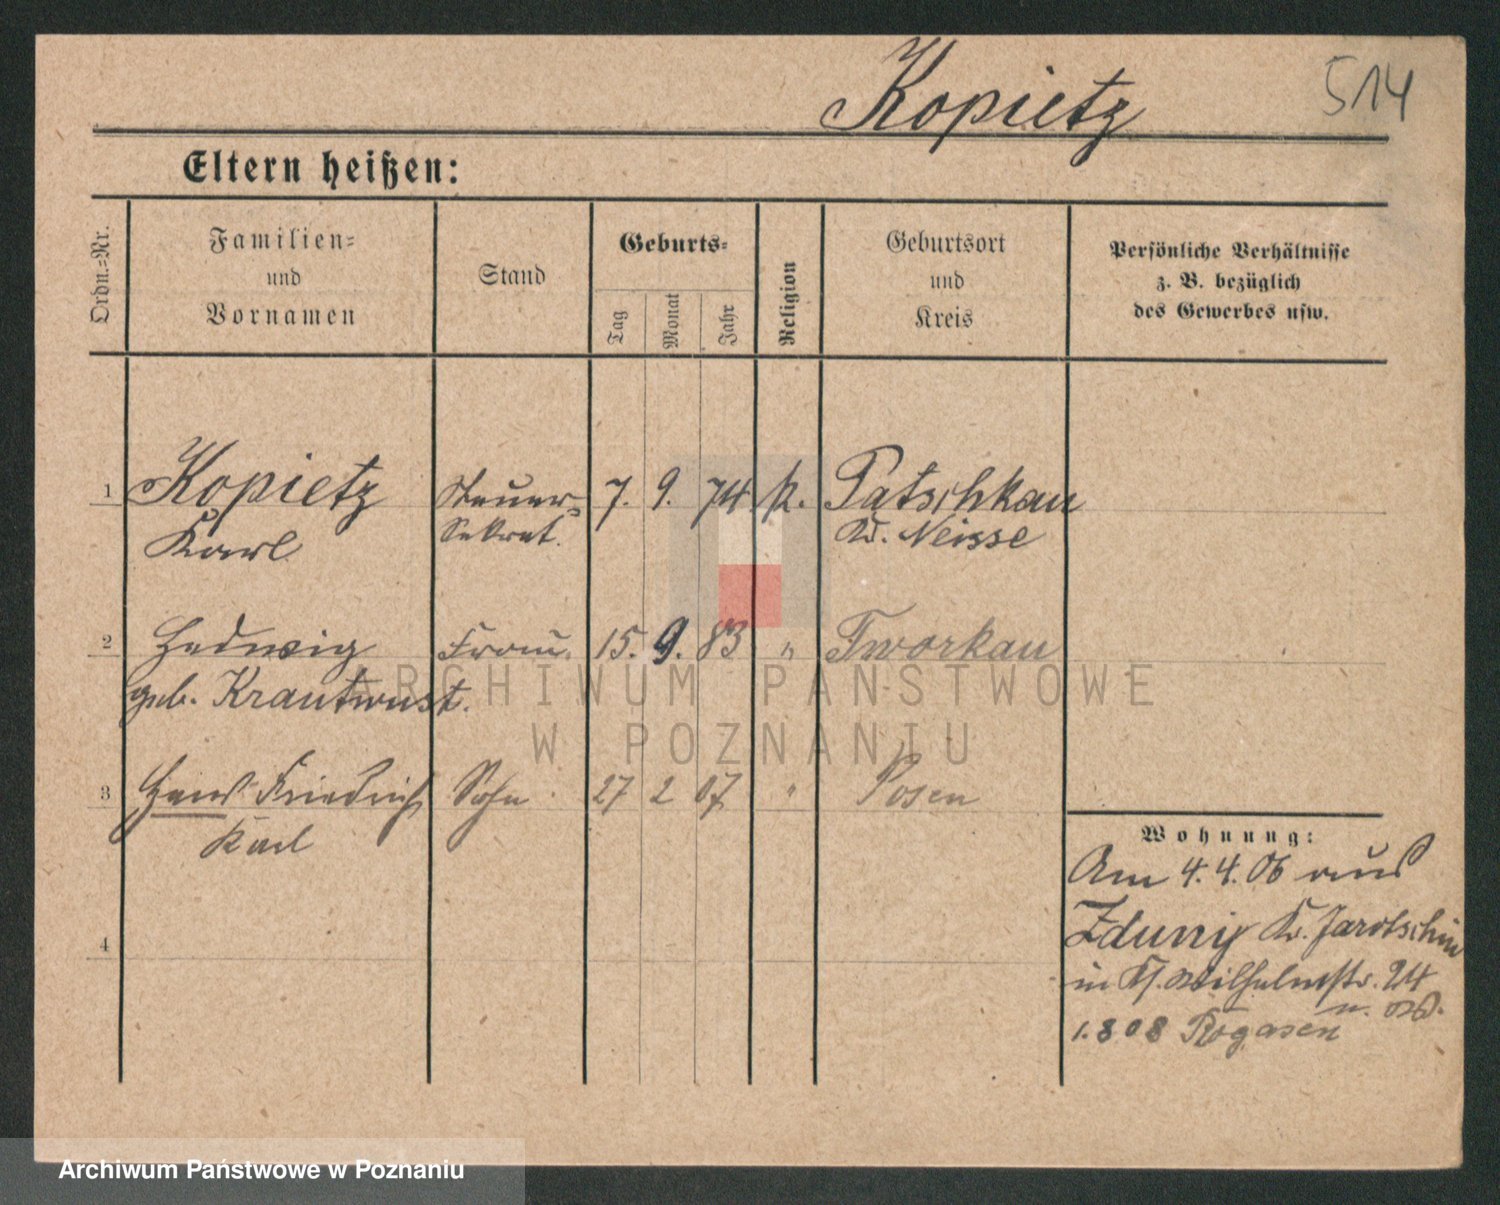 Kopietz
514
Eltern heißen:
Ordn.-Nr.
Familien-
und
Vornamen
Stand
Geburts-
Tag
Monat
Jahr
Religion
Geburtsort
und
Kreis
Persönliche Verhältnisse
z. B. bezüglich
des Gewerbes usw.
1 Kopietz Steuer- 7. 9. 74 k. Patschkau
Karl Sekret. Kr. Neisse
2 Hedwig Frau. 15. 9. 83 " Tworkau
geb. Krautwust.
3 Hans Friedrich Sohn 27 2 07 " Posen
Karl
4
Wohnung:
Am 4.4.06 aus
Zduny Kr. Jarotschin
in Kl. Wilhelmstr. 24
1.8 08 Rogasen
ARCHIWUM PAŃSTWOWE
W POZNANIU
Archiwum Państwowe w Poznaniu